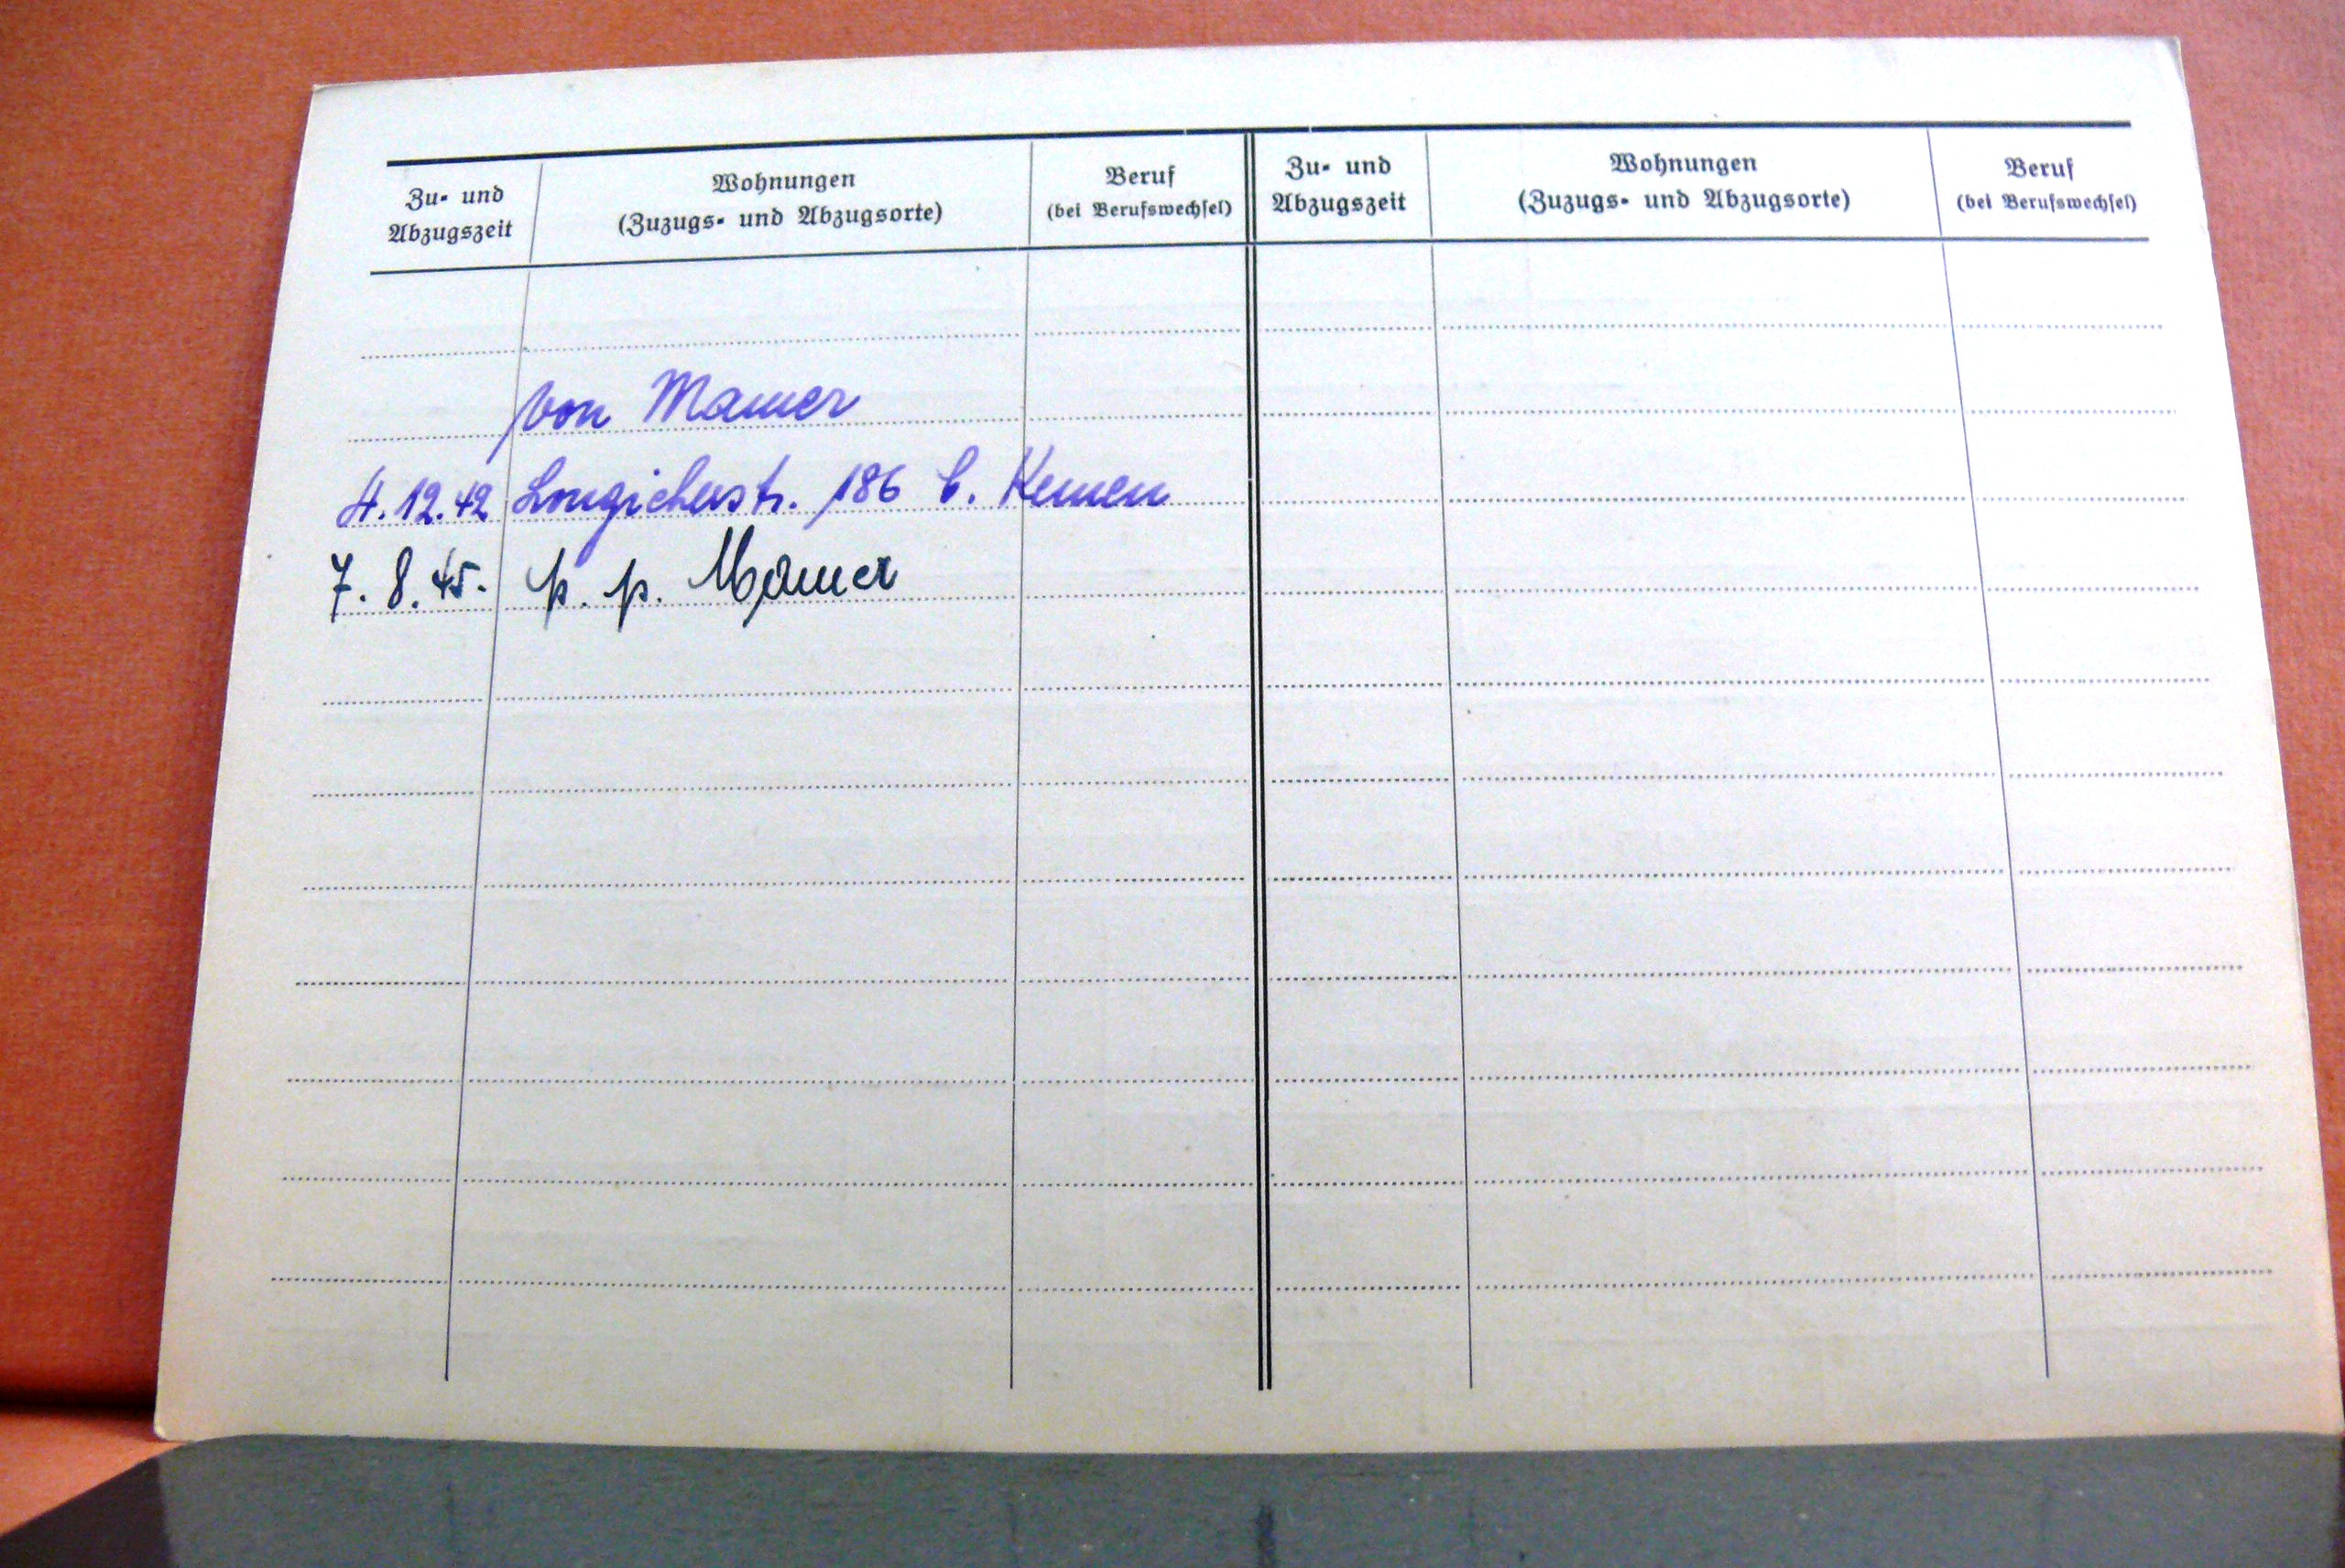 Zu- und Abzugszeit
Wohnungen (Zuzugs- und Abzugsorte)
Beruf (bei Berufswechsel)
Zu- und Abzugszeit
Wohnungen (Zuzugs- und Abzugsorte)
Beruf (bei Berufswechsel)
von Mamer
4.12.42 Longicherstr. 186 b. Kemen
7. 8. 45. p. p. Mamer